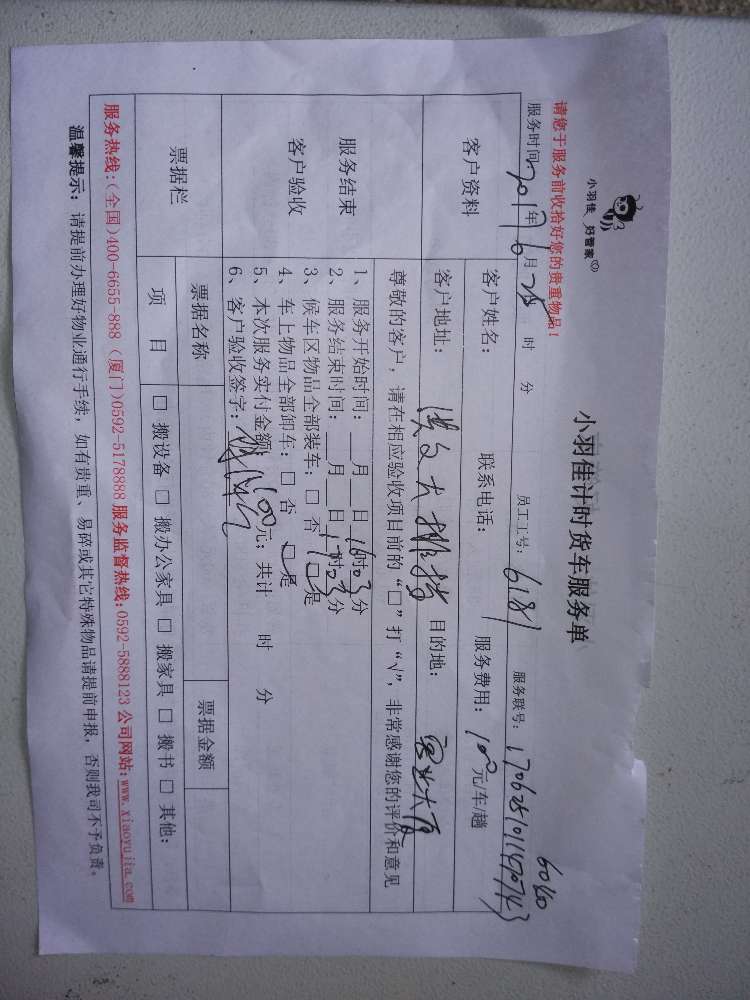 小羽佳 好管家
小羽佳计时货车服务单
请您于服务前收拾好您的贵重物品！
服务时间: 2017年6月25 时 分 员工工号: 6181 服务联号:
6040
客户资料
客户姓名: 联系电话: 服务费用: 100元/车/趟
客户地址: 目的地:
服务结束
客户验收
尊敬的客户，请在相应验收项目前的“□”打“√”，非常感谢您的评价和意见
1、服务开始时间: 月 日 16时03分
2、服务结束时间: 月 日 17时03分
3、候车区物品全部装车: □ 否 □是
4、车上物品全部卸车: □ 否 □是
5、本次服务实付金额: 100元; 共计 时 分
6、客户验收签字:
票据栏
票据名称 票据金额
项 目 □ 搬设备 □ 搬办公家具 □ 搬家具 □ 搬书 □ 其他:
服务热线:(全国)400-6655-888 (厦门)0592-5178888 服务监督热线:0592-5888123 公司网站:www.xiaoyujia.com
温馨提示: 请提前办理好物业通行手续，如有贵重、易碎或其它特殊物品请提前申报，否则我司不予负责。